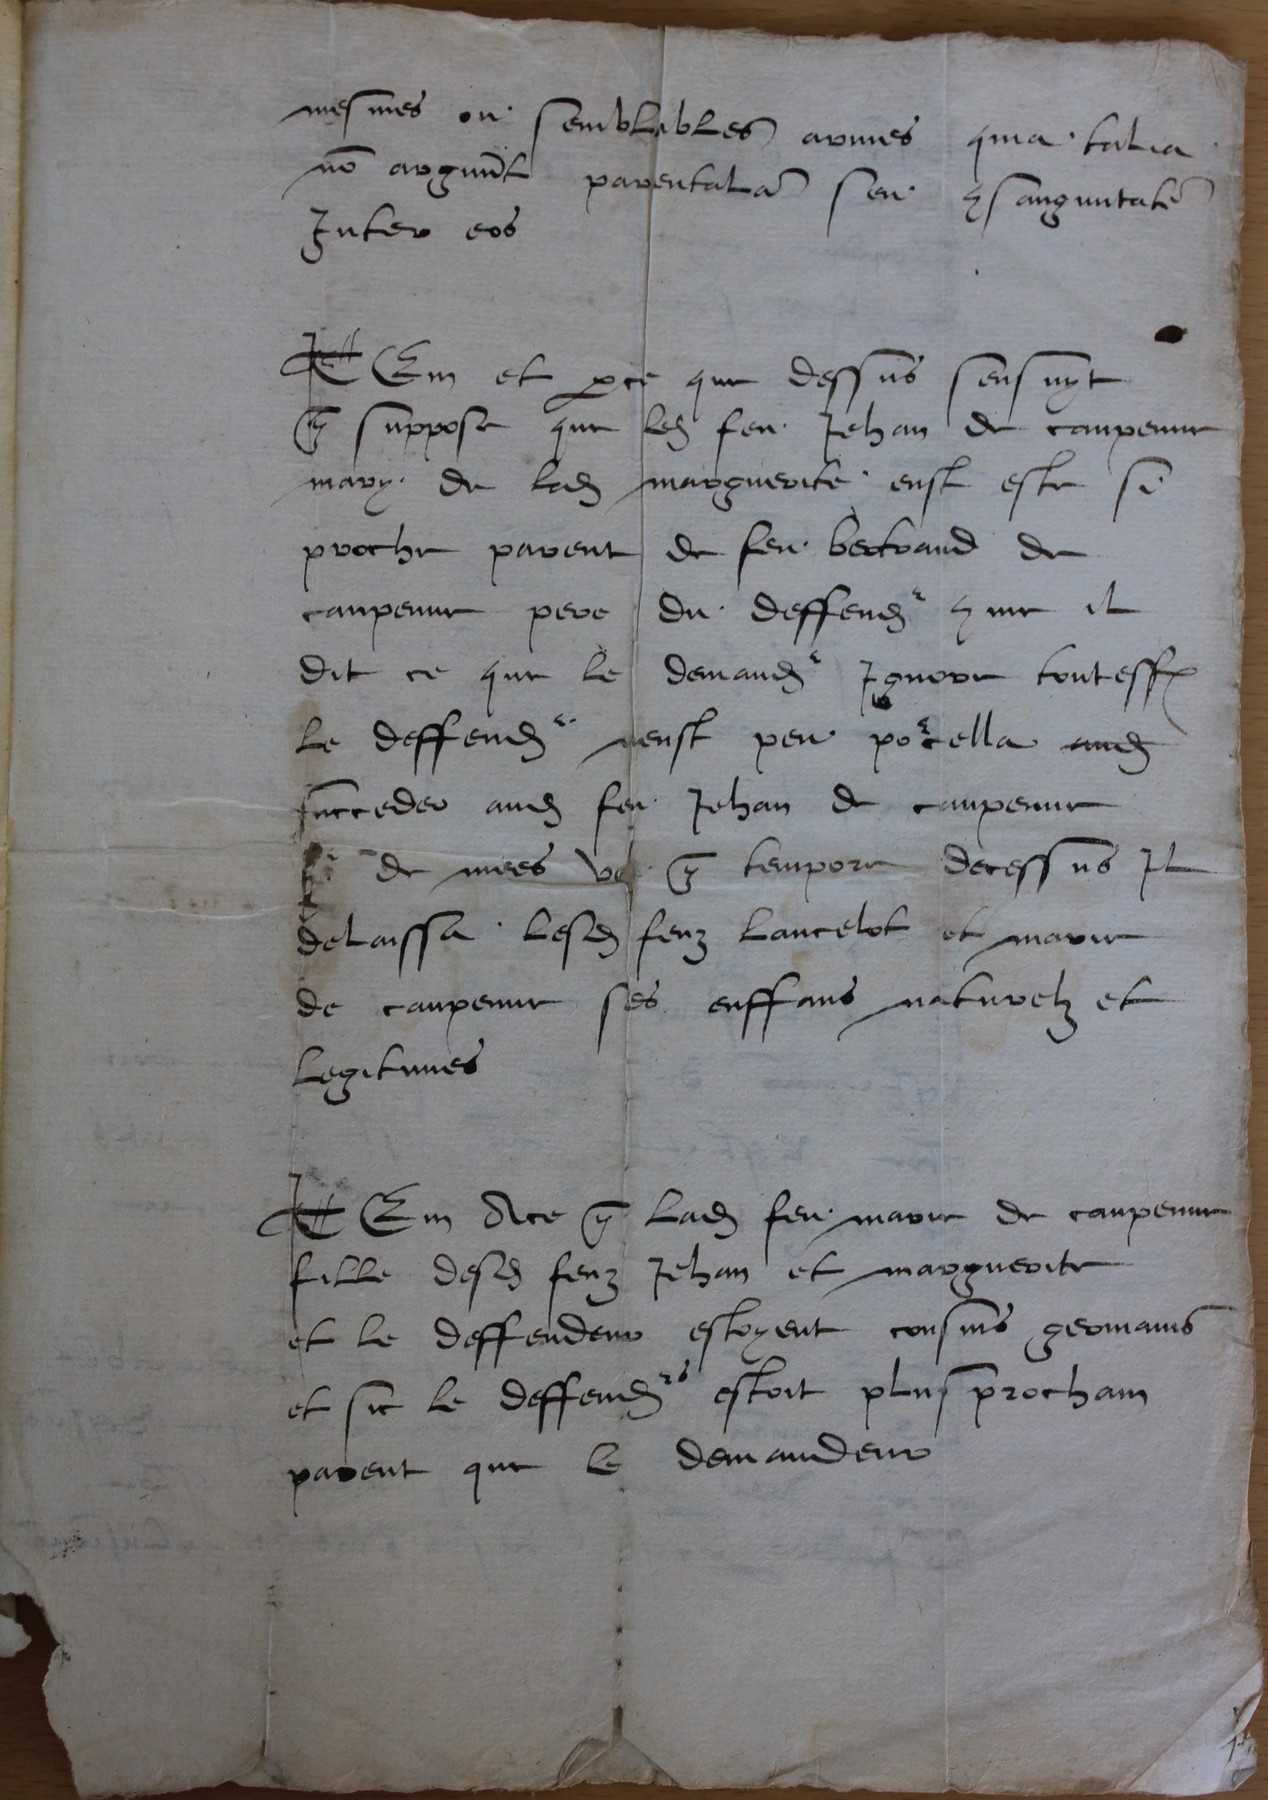 mesmes ou semblables armes quia talia
no argunt parentala seu 9sanguitate
Inter eos
Item et p ce que dessus sensuyt
q suppose que led feu Jehan de caupenne
mary de lad marguerite eust este si
proche parent de feu bertrand de
caupenne pere du deffendr 9me il
dit ce que le demandr Ignore toutesff
le deffendr neust peu pour cella aud
succeder aud feu Jehan de caupenne
sr de mees q tempore decessus Il
delaissa lesd feuz Lancelot et marie
de caupenne ses enffans naturelz et
legitimes
Item Ace q lad feu marie de caupenne
fille desd feuz Jehan et marguerite
et le deffendeur estoyent cousins germains
et sic le deffendrs estoit plus prochain
parent que le demandeur